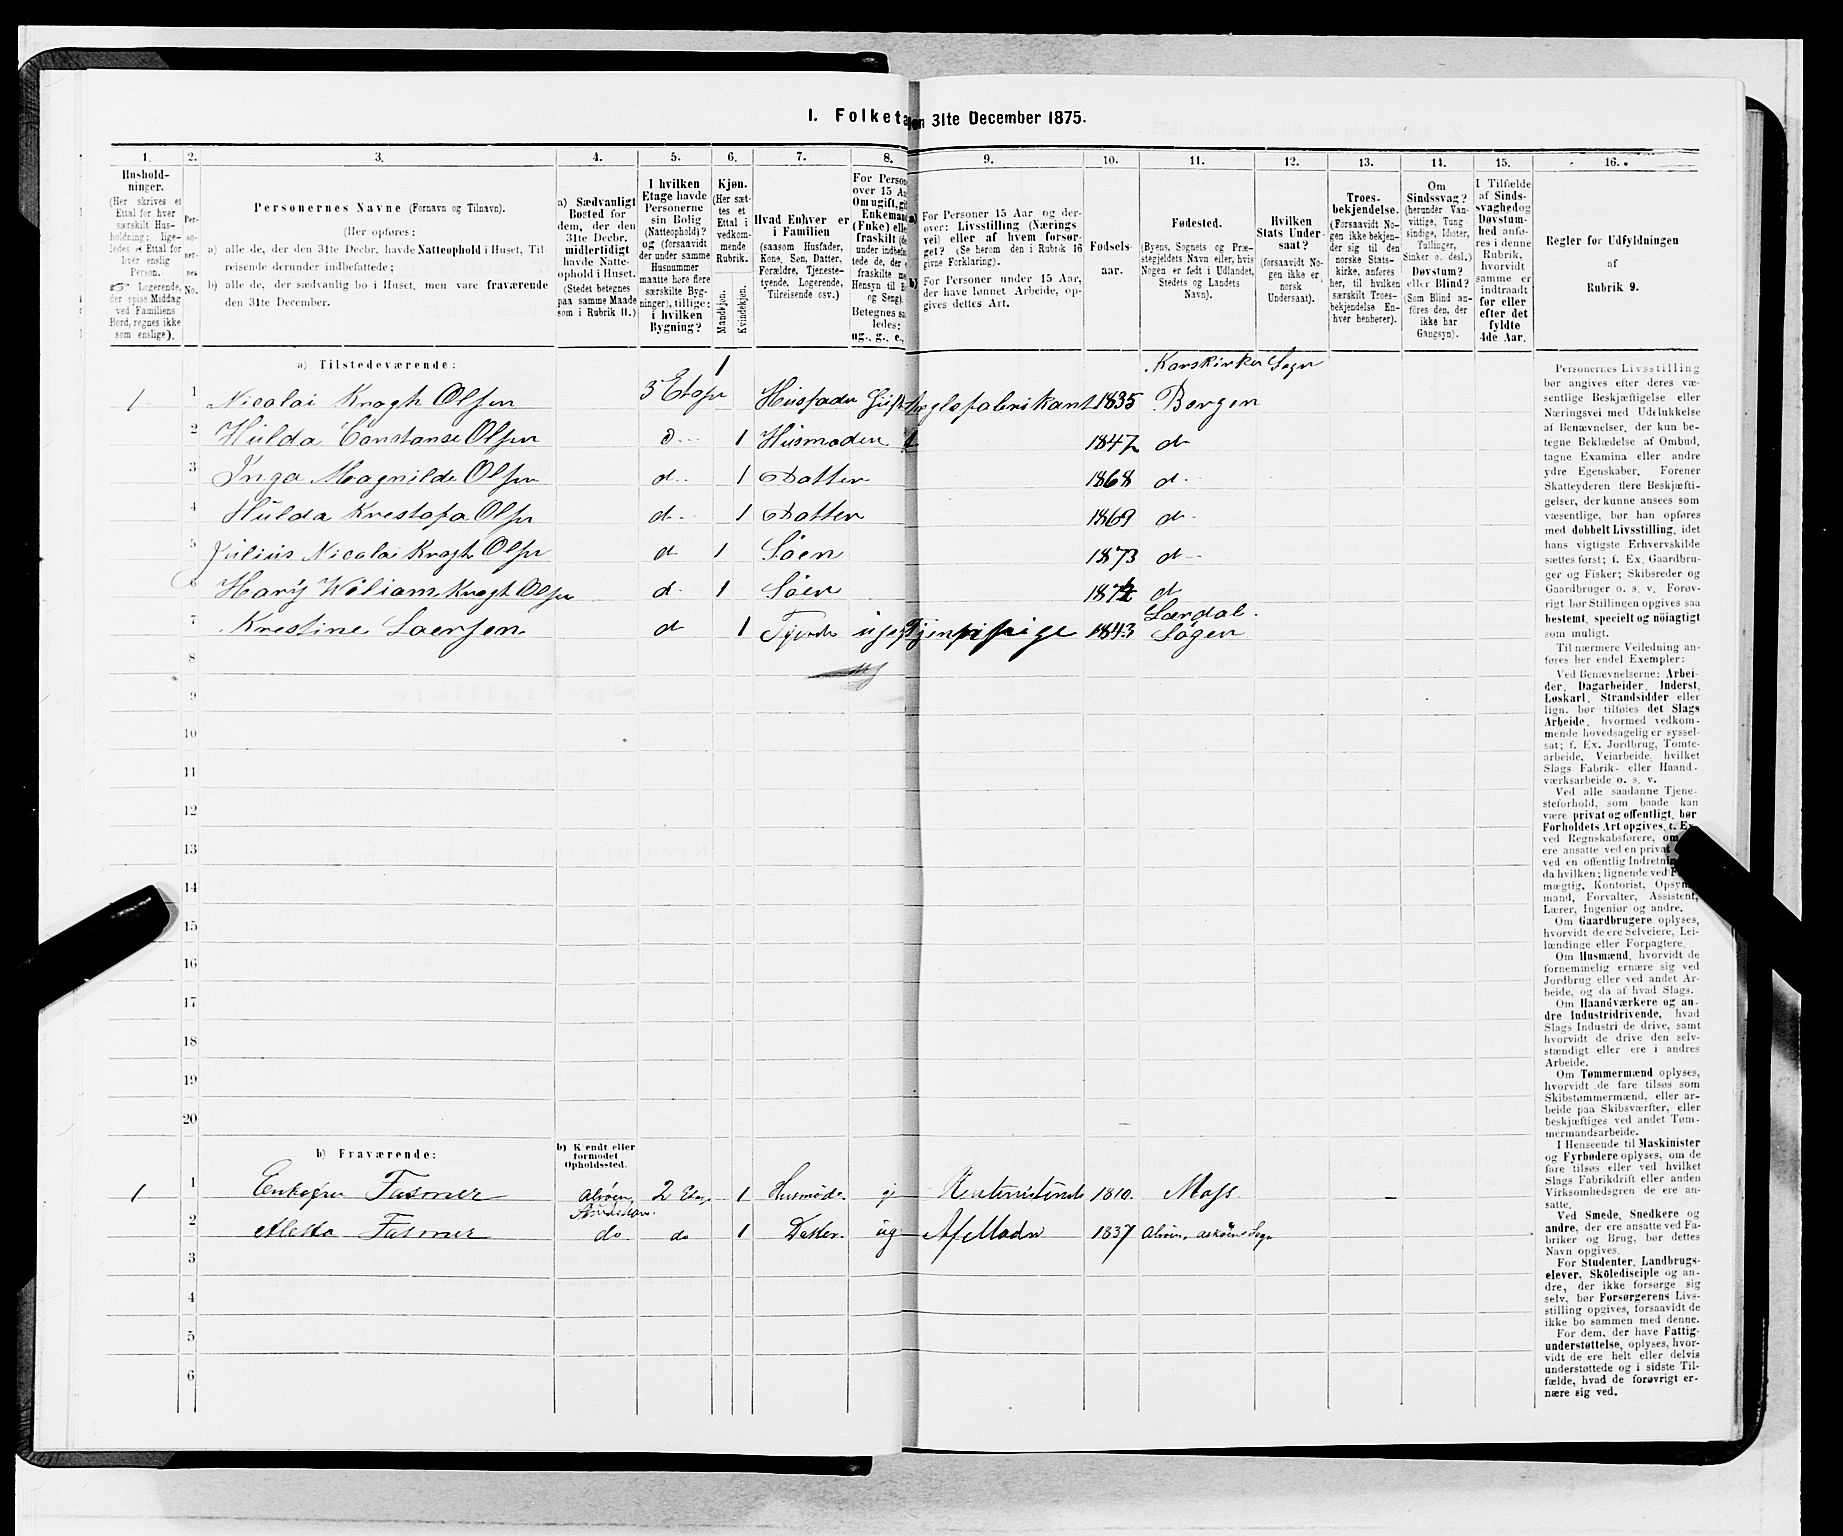 I. Folketa den 31te December 1875.
1. 2. 3. 4. 5. 6. 7. 8. 9. 10. 11. 12. 13. 14. 15. 16.
Hushold-
ninger.
(Her skrives et
Ettal for hver
særskilt Hus-
holdning; lige-
ledes et Ettal for
hver enslig
Person.
Logerende,
der spise Middag
ved Familiens
Bord, regnes ikke
som enslige).
Per-
so-
ner-
nes
No.
Personernes Navne (Fornavn og Tilnavn).
(Her opføres:
a) alle de, der den 31te Decbr. havde Natteophold i Huset, Til-
reisende derunder indbefattede;
b) alle de, der sædvanlig bo i Huset, men vare fraværende
den 31te December.
a) Sædvanligt
Bosted for
dem, der den
31te Decbr.
midlertidigt
havde Natte-
ophold i Huset.
(Stedet betegnes
paa samme Maade
som i Rubrik 11.)
I hvilken
Etage havde
Personerne
sin Bolig
(Natteophold)?
og (forsaavidt
der under samme
Husnummer
maatte høre flere
særskilte Byg-
ninger), tillige:
i hvilken
Bygning?
Kjøn.
(Her sæt-
tes et
Ettal i
vedkom-
mende
Rubrik.
Mandkjøn.
Kvindekjøn.
Hvad Enhver er
i Familien
(saasom Husfader,
Kone, Søn, Datter,
Forældre, Tjeneste-
tyende, Logerende,
Tilreisende osv.)
For Person
over 15 Aa
Om ugift, gif
Enkemand
(Enke) elle
fraskilt (de
under indbe
tede de, der
fraskilte me
Hensyn til B
og Seng).
Betegnes sa
ledes:
ug., g., e.,
a) For Personer 15 Aar og der-
over: Livsstilling (Nærings
vei) eller af hvem forsør-
get? (Se herom den i Rubrik 16
givne Forklaring).
b) For Personer under 15 Aar,
der have lønnet Arbeide, op-
gives dettes Art.
Fødsels-
aar.
Fødested.
(Byens, Sognets og Præ-
stegjeldets Navn eller, hvis
Nogen er født i Udlandet,
Stedets og Landets
Navn).
Hvilken
Stats Under-
saat?
(forsaavidt No-
gen ikke er
norsk
Undersaat).
Troes-
bekjendelse.
(Forsaavidt No-
gen ikke bekjen-
der sig til den
norske Stats-
kirke, anføres
her, til hvilken
særskilt Troes-
bekjendelse En-
hver henhører).
Om
Sindssvag?
(herunder Van-
vittige, Tung-
sindige, Idioter,
Tullinger,
Sinker o. desl.)
Døvstum?
eller Blind?
(Som Blind an-
føres den, der
ikke har
Gangsyn).
I Tilfælde
af Sinds-
svaghed og
Døvstum-
hed anfø-
res i denne
Rubrik,
hvorvidt
samme er
indtraadt
før eller
efter det
fyldte
4de Aar.
Regler for Udfyldningen
af
Rubrik 9.
a) Tilstedeværende:
Korskirkes Sogn
1 1 Nicolai Krogh Olsen 3 Etage 1 Husfader Gift fabrikant 1835 Bergen
2 Hulda Constanse Olsen d 1 Husmoder 1847 d
3 Inga Magnilde Olsen d 1 Datter 1868 d
4 Hulda Krestofa Olsen d 1 Datter 1869 d
5 Julius Nicolai Krogh Olsen d 1 Søen 1873 d
6 Hary Wiliam Krogh Olsen d 1 Søen 187 d
7 Krestine Laersen d 1 Tjenst ugift Tjenistpige 1843 Lærdal Sogen
8
9
10
11
12
13
14
15
16
17
18
19
20
b) Fraværende:
b) Kjendt eller
formodet
Opholdssted.
1 1 Enkefru Fasmer Alrøen 2 Etag. 1 Husmode. 1810. Moss
2 Aletta Fasmer do do 1 Datter. ug Af Moder 1837 Alrøen, Askøens Sogn
3
4
5
6
Personernes Livsstilling
bør angives efter deres væ-
sentlige Beskjæftigelse eller
Næringsvei med Udelukkelse
af Benævnelser, der kun be-
tegne Beklædelse af Ombud,
tagne Examina eller andre
ydre Egenskaber. Forener
Skatteyderen flere Beskjæfti-
gelser, der kunne ansees som
væsentlige, bør han opføres
med dobbelt Livsstilling, idet
hans vigtigste Erhvervskilde
sættes først; f. Ex. Gaardbru-
ger og Fisker; Skibsreder og
Gaardbruger o. s. v. Forøv-
rigt bør Stillingen opgives saa
bestemt, specielt og nøiagtigt
som muligt.
Til nærmere Veiledning an-
føres her endel Exempler:
Ved Benævnelserne: Arbei-
der, Dagarbeider, Inderst,
Løskarl, Strandsidder eller
lign. bør tilføies det Slags
Arbeide, hvormed vedkom-
mende hovedsagelig er syssel-
sat; f. Ex. Jordbrug, Tomte-
arbeide, Veiarbeide, hvilket
Slags Fabrik- eller Haand-
værksarbeide o. s. v.
Ved alle saadanne Tjene-
steforhold, som baade kan
være privat og offentligt, bør
Forholdets Art opgives, t. Ex.
ved Regnskabsførere, om
ere ansatte ved en privat
ved en offentlig Indretnin
da hvilken; lignende ved F
mægtig, Kontorist, Opsyns-
mand, Forvalter, Assistent,
Lærer, Ingeniør og andre.
Om Gaardbrugere oplyses,
hvorvidt de ere Selveiere, Lei-
lændinge eller Forpagtere.
Om Husmænd, hvorvidt de
fornemmelig ernære sig ved
Jordbrug eller ved andet Ar-
beide, og da af hvad Slags.
Om Haandværkere og an-
dre Industridrivende, hvad
Slags Industri de drive, samt
hvorvidt de drive den selv-
stændigt eller ere i andres
Arbeide.
Om Tømmermænd oplyses,
hvorvidt de fare tilsøs som
Skibstømmermænd, eller ar-
beide paa Skibsværfter, eller
beskjæftiges ved andet Tøm-
mermandsarbeide.
I Henseende til Maskinister
og Fyrbødere oplyses, om de
fare tilsøs eller ved hvilket
Slags Fabrikdrift eller anden
Virksomhedsgren de ere an-
satte.
Ved Smede, Snedkere og
andre, der ere ansatte ved Fa-
briker og Brug, bør dettes
Navn opgives.
For Studenter, Landbrugs-
elever, Skoledisciple og an-
dre, der ikke forsørge sig
selv, bør Forsørgerens Livs-
stilling opgives, forsaavidt de
ikke bo sammen med denne.
For dem, der have Fattig-
understøttelse, oplyses, hvor-
vidt de ere helt eller delvis
understøttede og i sidste Til-
fælde, hvad de forøvrigt er-
nære sig ved.